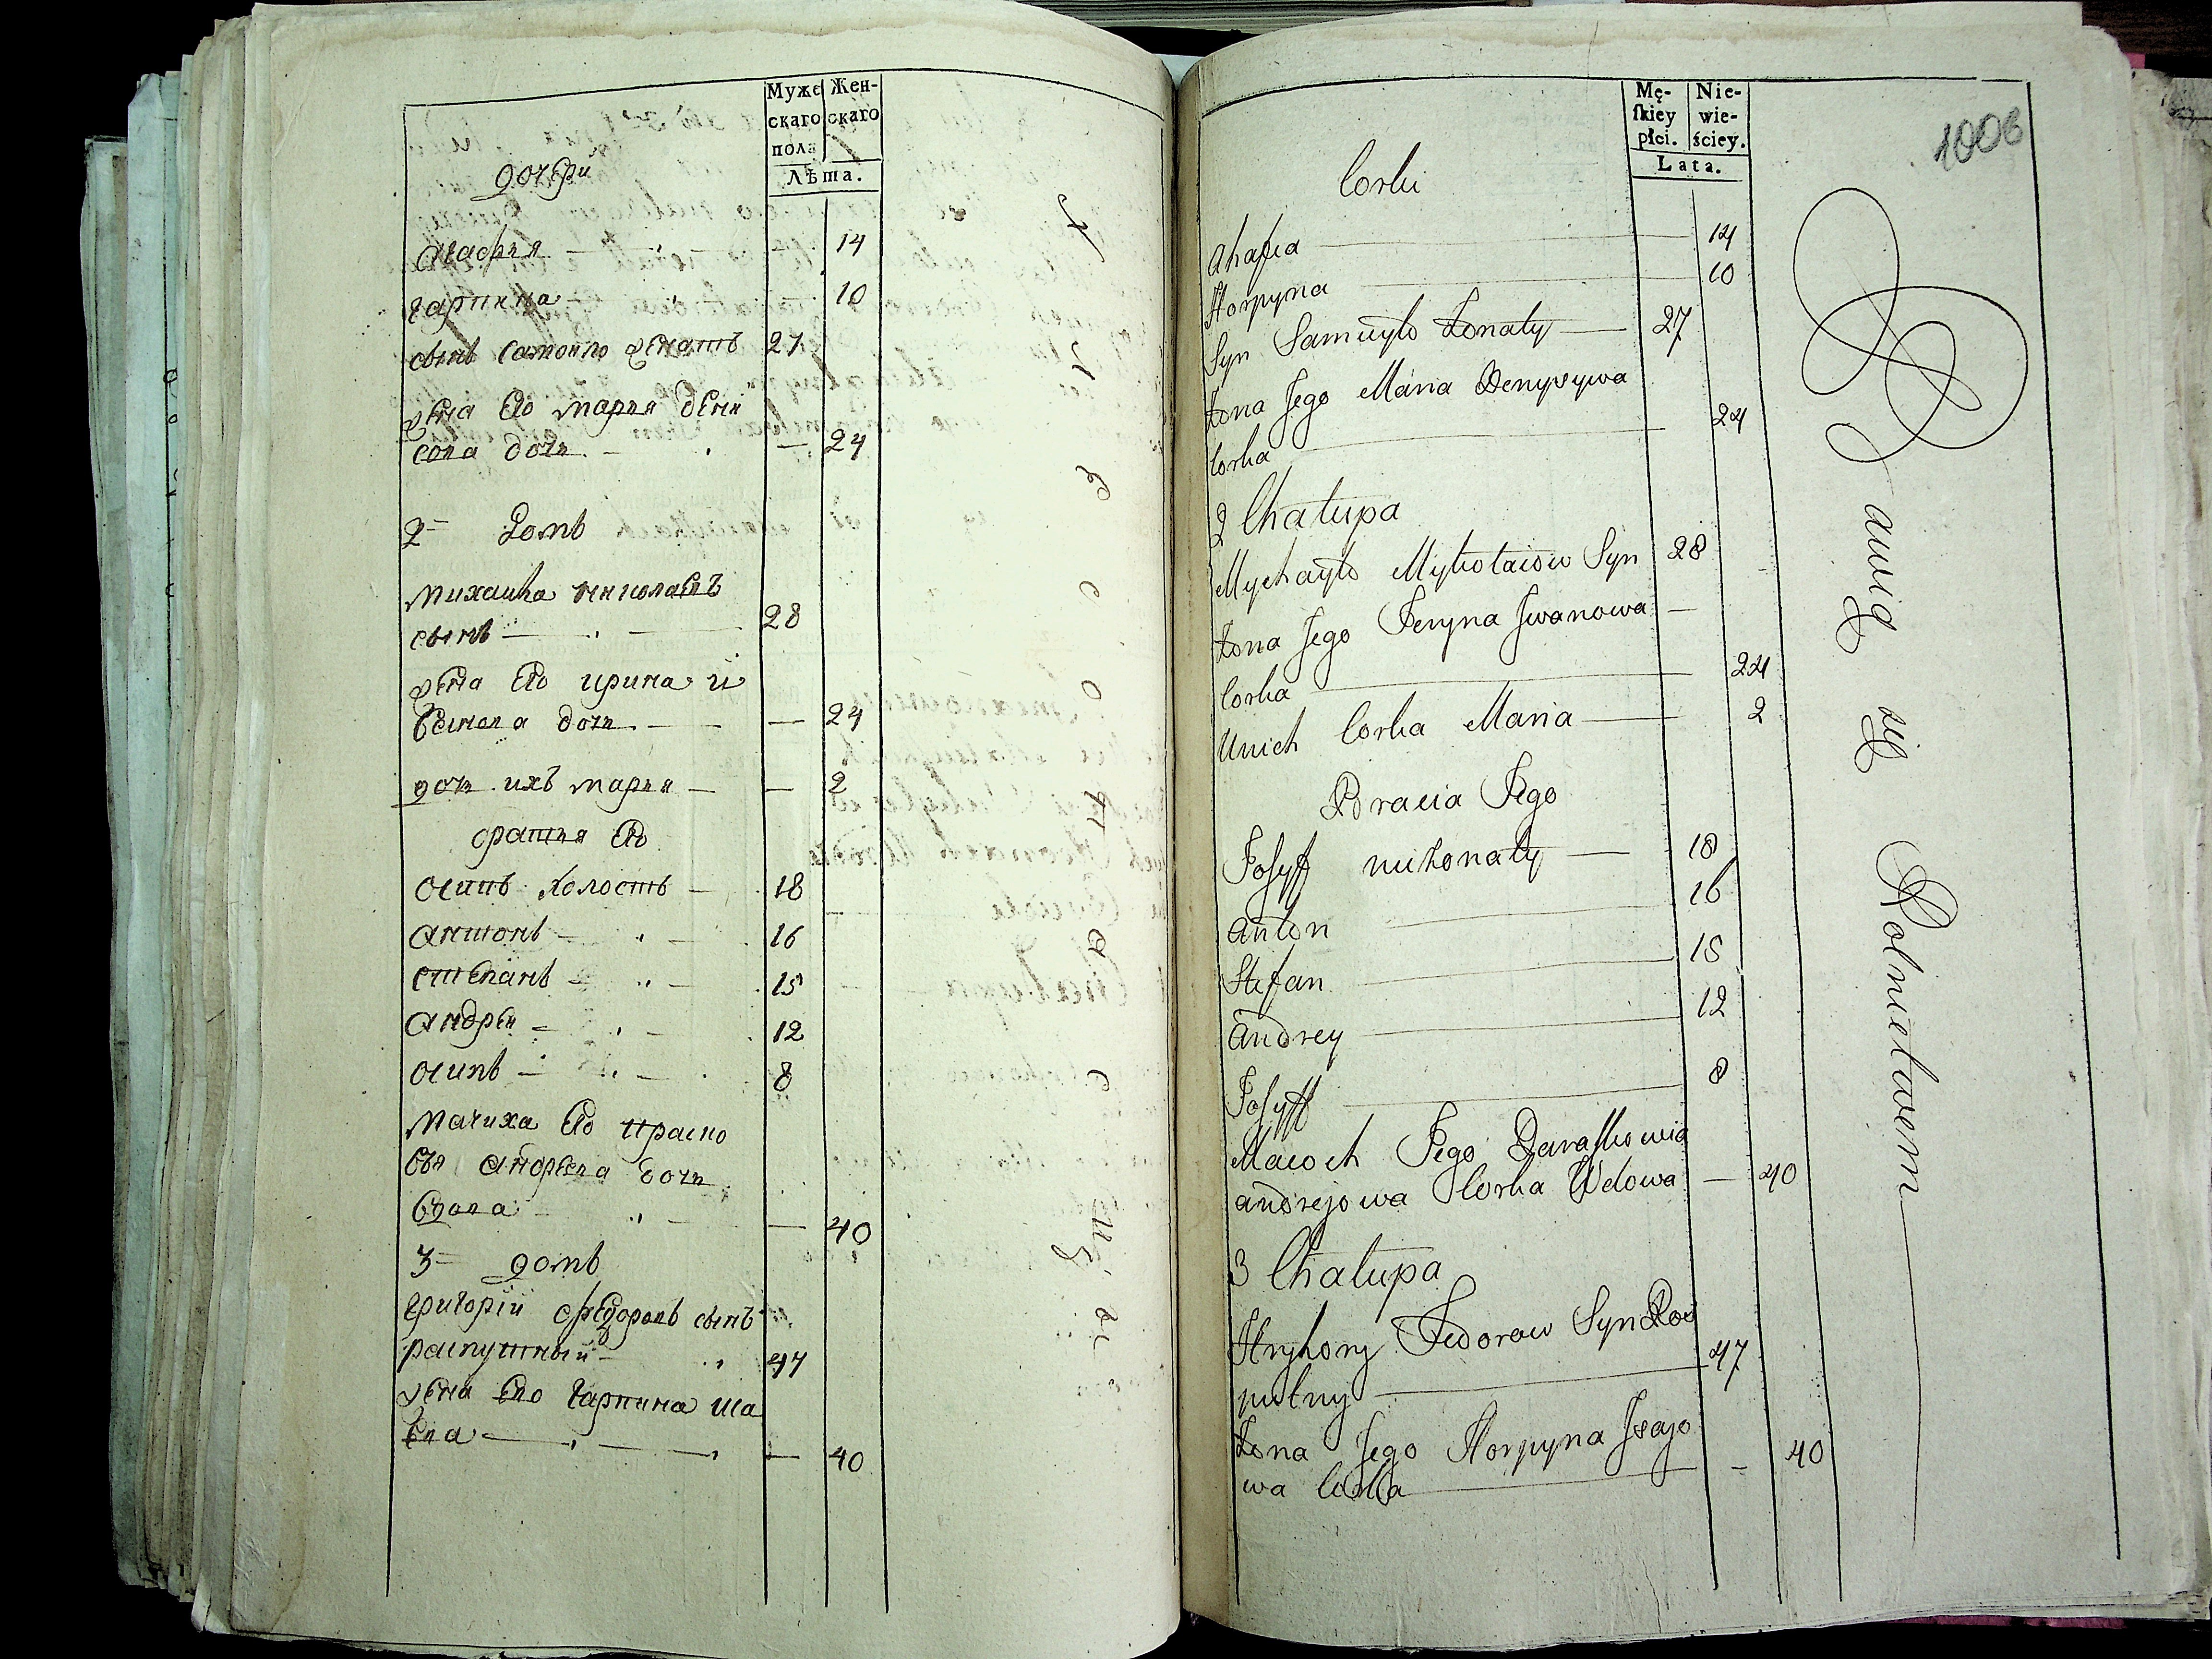 Муже
скаго
пола
Жен-
скаго
Лѣта.
дочери
агафия 14
гарпина 10
сынъ самоило женатъ 27
жена его марья дени
сова дочь 24
2 Домъ
михайла николаевъ
сынъ 28
жена его ирина и
ванова дочь 24
дочь ихъ марья 2
братья его
осипъ холостъ 18
антонъ 16
степанъ 15
андрей 12
осипъ 8
мачиха его праско
вья андреева дочь
вдова 40
3 домъ
григорій федоровъ сынъ
распутный 47
жена его гарпина иса
ева 40
Mę-
skiey
płci.
Nie-
wie-
ściey.
Lata.
1006
Corki
Ahafia 14
Horpyna 10
Syn Samuyło żonaty 27
żona Jego Maria Denysywa
Corka 24
2 Chałupa
Mychayło Mykołaiow Syn 28
żona Jego Jeryna Jwanowa
Corka 24
Unich Corka Maria 2
Bracia Jego
Josyf niżonaty 18
Anton 16
Stefan 15
Andrey 12
Josyff 8
Macoch Jego Paraskowia
Andrejowa Corka Wdowa 40
3 Chałupa
Hryhory Fedorow Syn Ros
putny 47
żona Jego Horpyna Jsajo
wa Corka 40
Bawią Się Rolnictwem